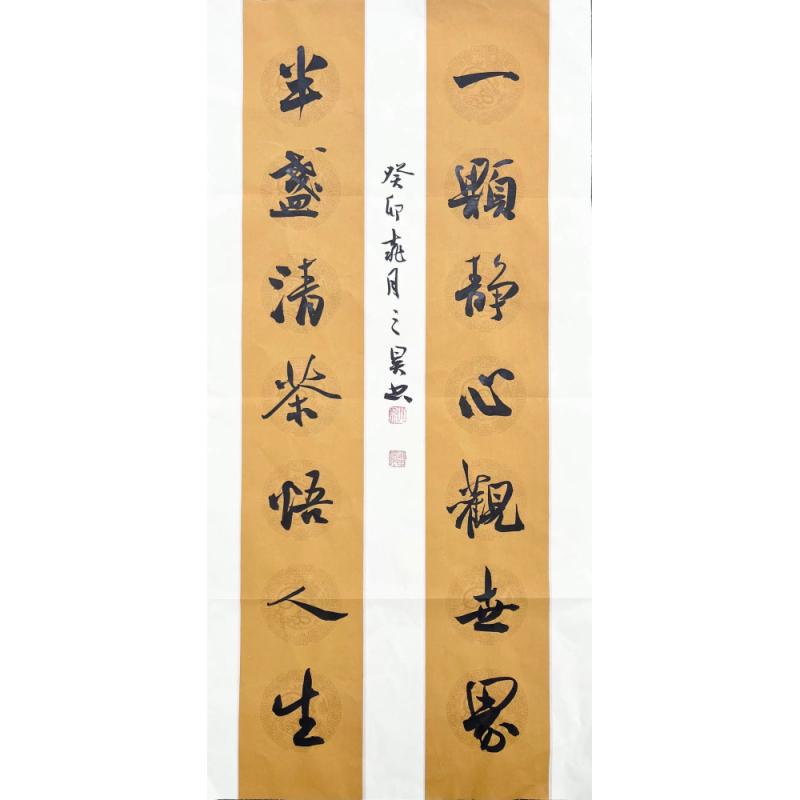 一顆静心觀世界
半盞清茶悟人生
癸卯 月之昊书